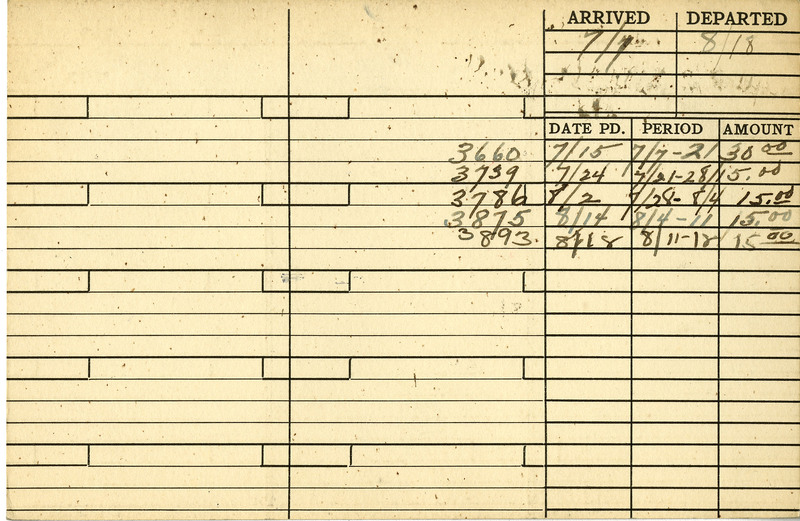 ARRIVED DEPARTED
7/7 8/18
DATE PD. PERIOD AMOUNT
3660 7/15 7/7-21 30.00
3739 7/24 7/21-28 15.00
3786 8/2 7/28-8/4 15.00
3875 8/14 8/4-11 15.00
3893. 8/18 8/11-18 15.00